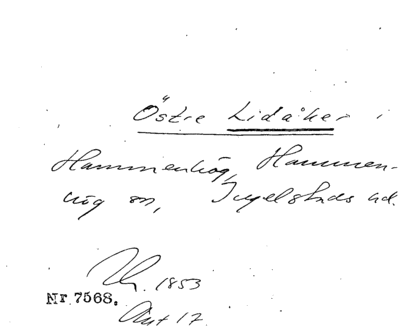 Östre Lidåker i
Hammenhög, Hammen-
hög sn, Ingelstads hd.
1853
Nr 7568.
Akt 17